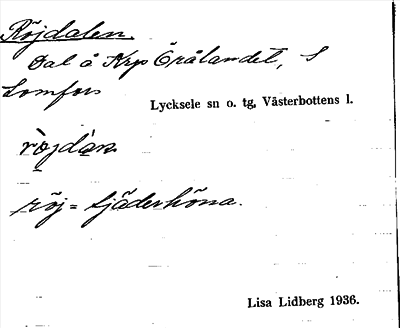 Röjdalen.
Dal å Krp Örålandet, S
Lomfors
Lycksele sn o. tg, Västerbottens l.
röjdàn
röj = tjäderhöna.
Lisa Lidberg 1936.